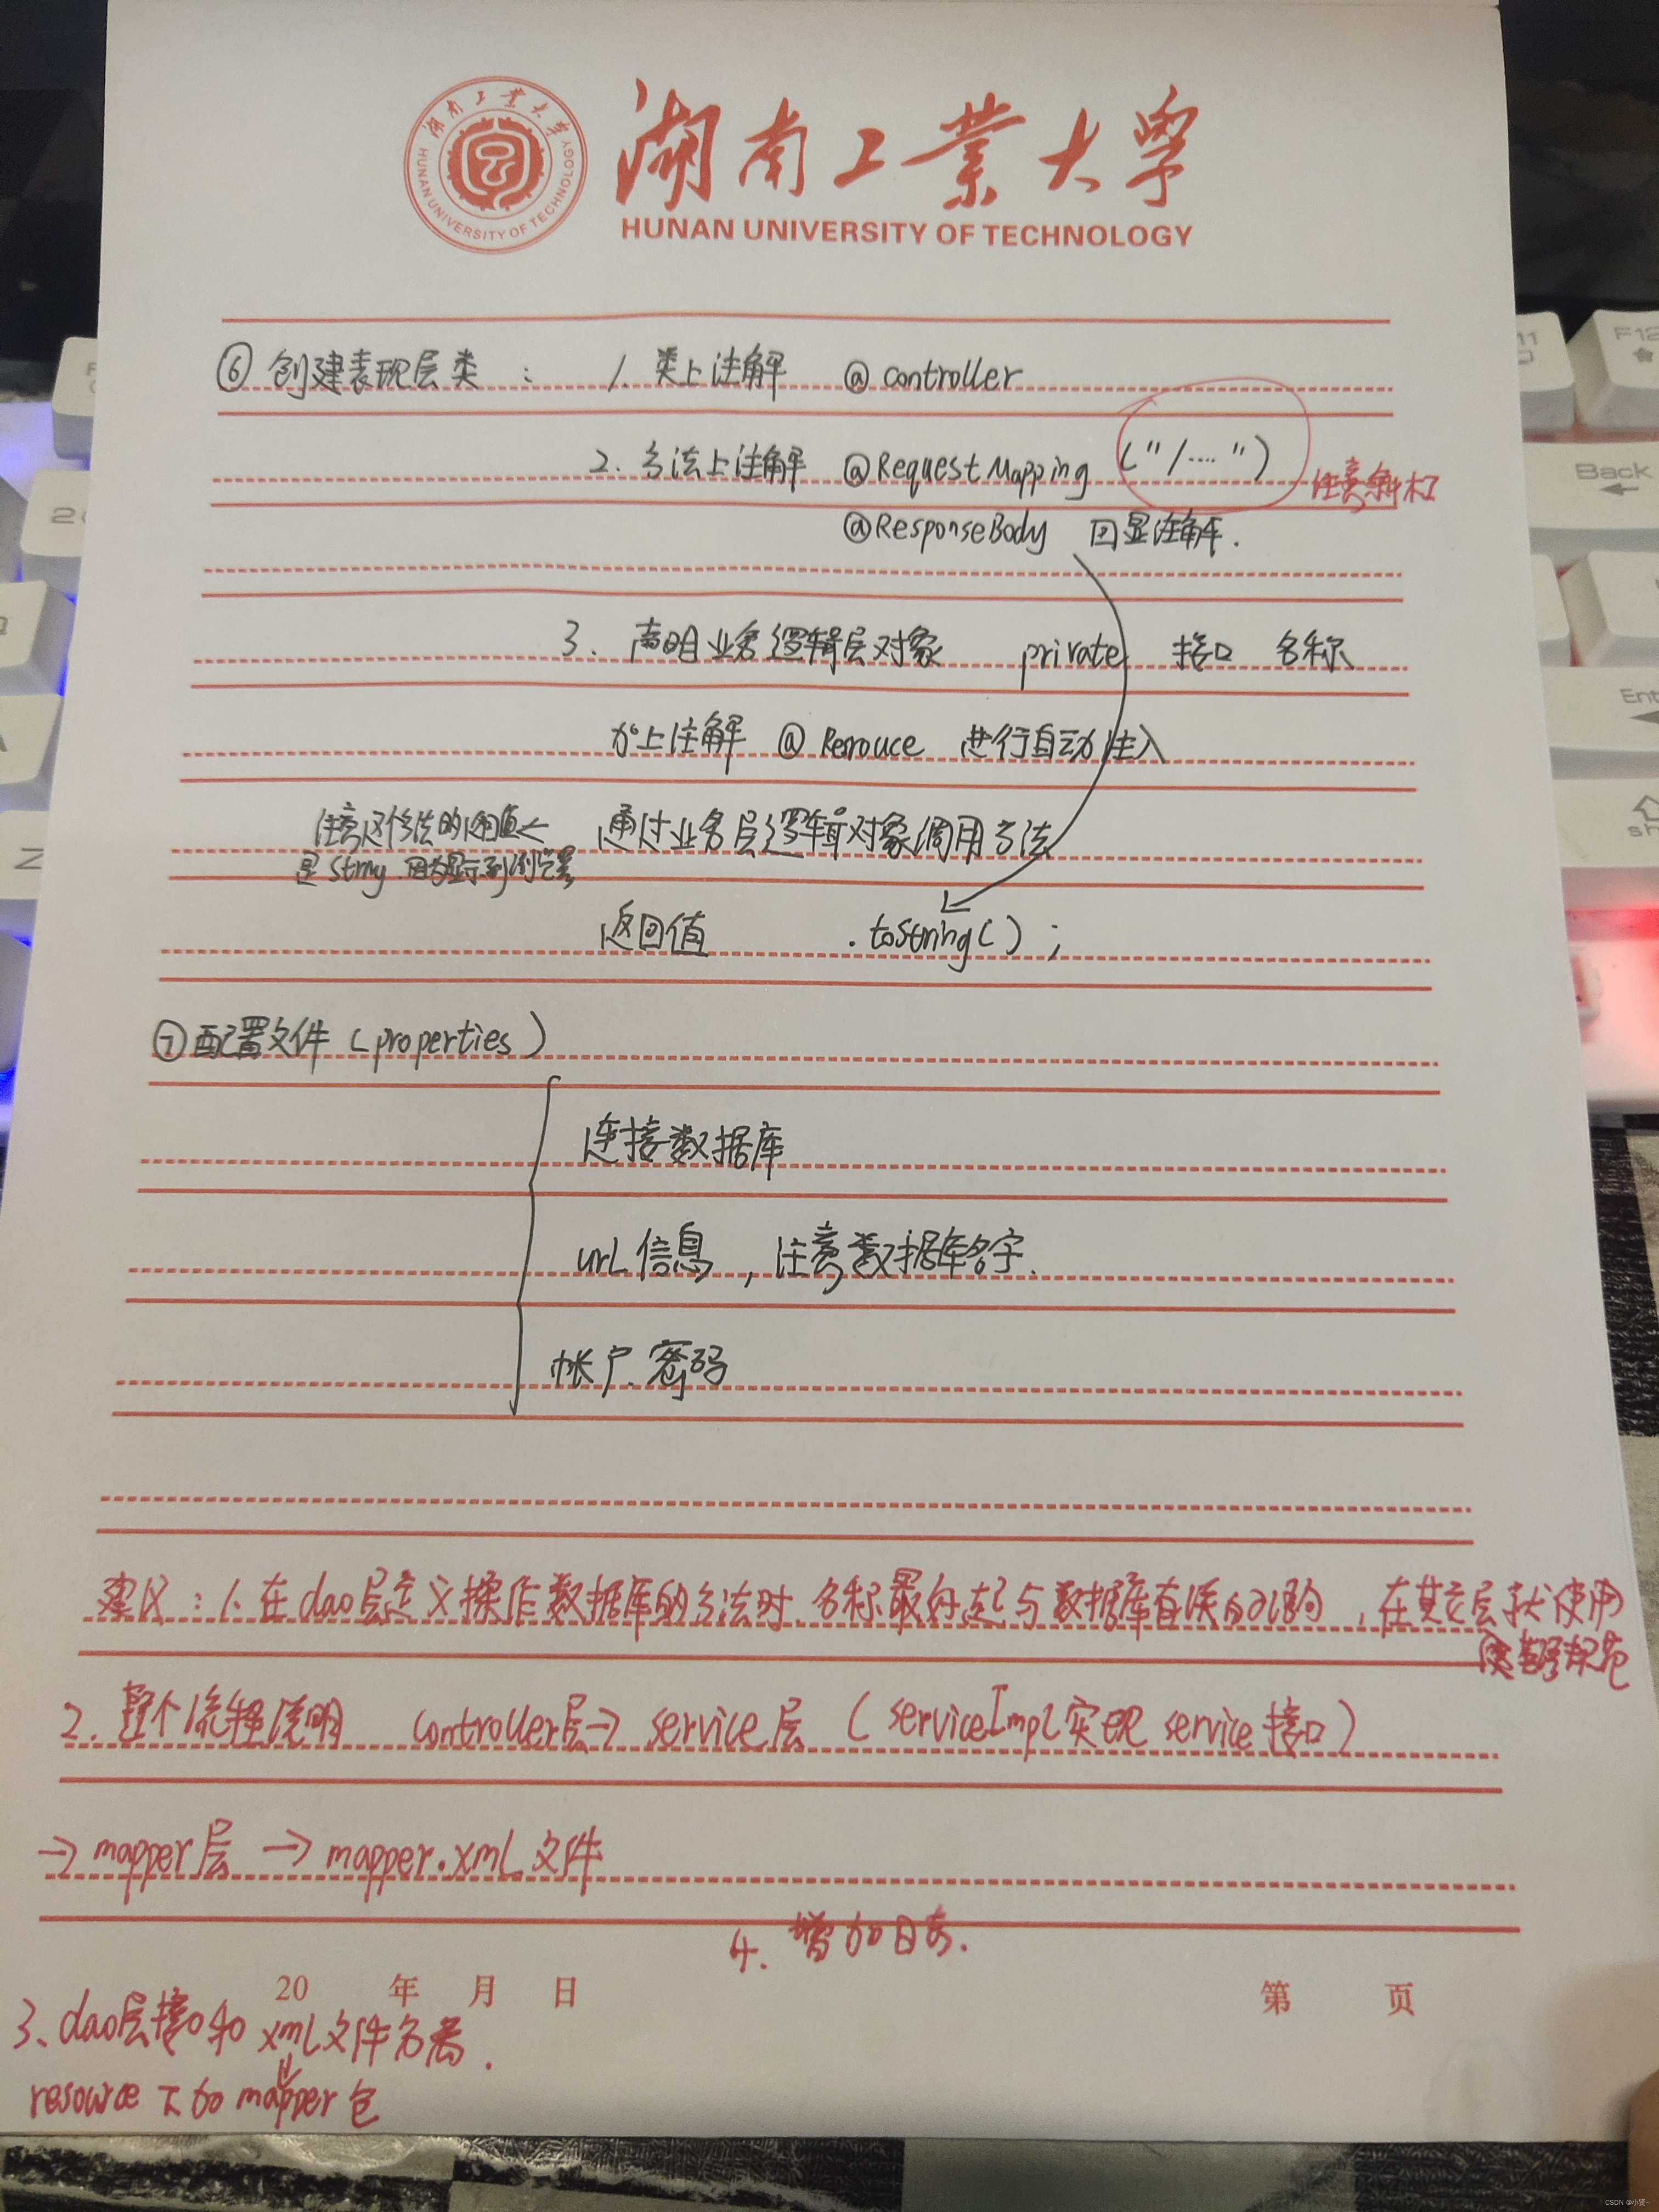 湖南工業大學
HUNAN UNIVERSITY OF TECHNOLOGY
湖南工业大学
HUNAN UNIVERSITY OF TECHNOLOGY
⑥ 创建表现层类 : 1. 类上注解 @ controller
2. 方法上注解 @RequestMapping ("/····")
注意斜杠
@ResponseBody 回显注解.
3. 声明业务逻辑层对象 private 接口 名称
加上注解 @ Resouce 进行自动注入
通过业务层逻辑对象调用方法
注意这个方法的返回值←
是String 因为显示到浏览器
返回值 .toString();
⑦配置文件 (properties)
连接数据库
url信息,注意数据库名字.
帐户.密码
建议:1.在dao层定义操作数据库的方法时.名称最好起与数据库有关的,在其它层使用
规范
2.整个流程说明 controller层→ service层 (serviceImpl实现service接口)
→ mapper层 → mapper.xml文件
4. 增加日志.
20 年 月 日
第 页
3、dao层接口和xml文件名
resource下的mapper包
F12
Back
Ent
sh
Z
CSDN @小贤~